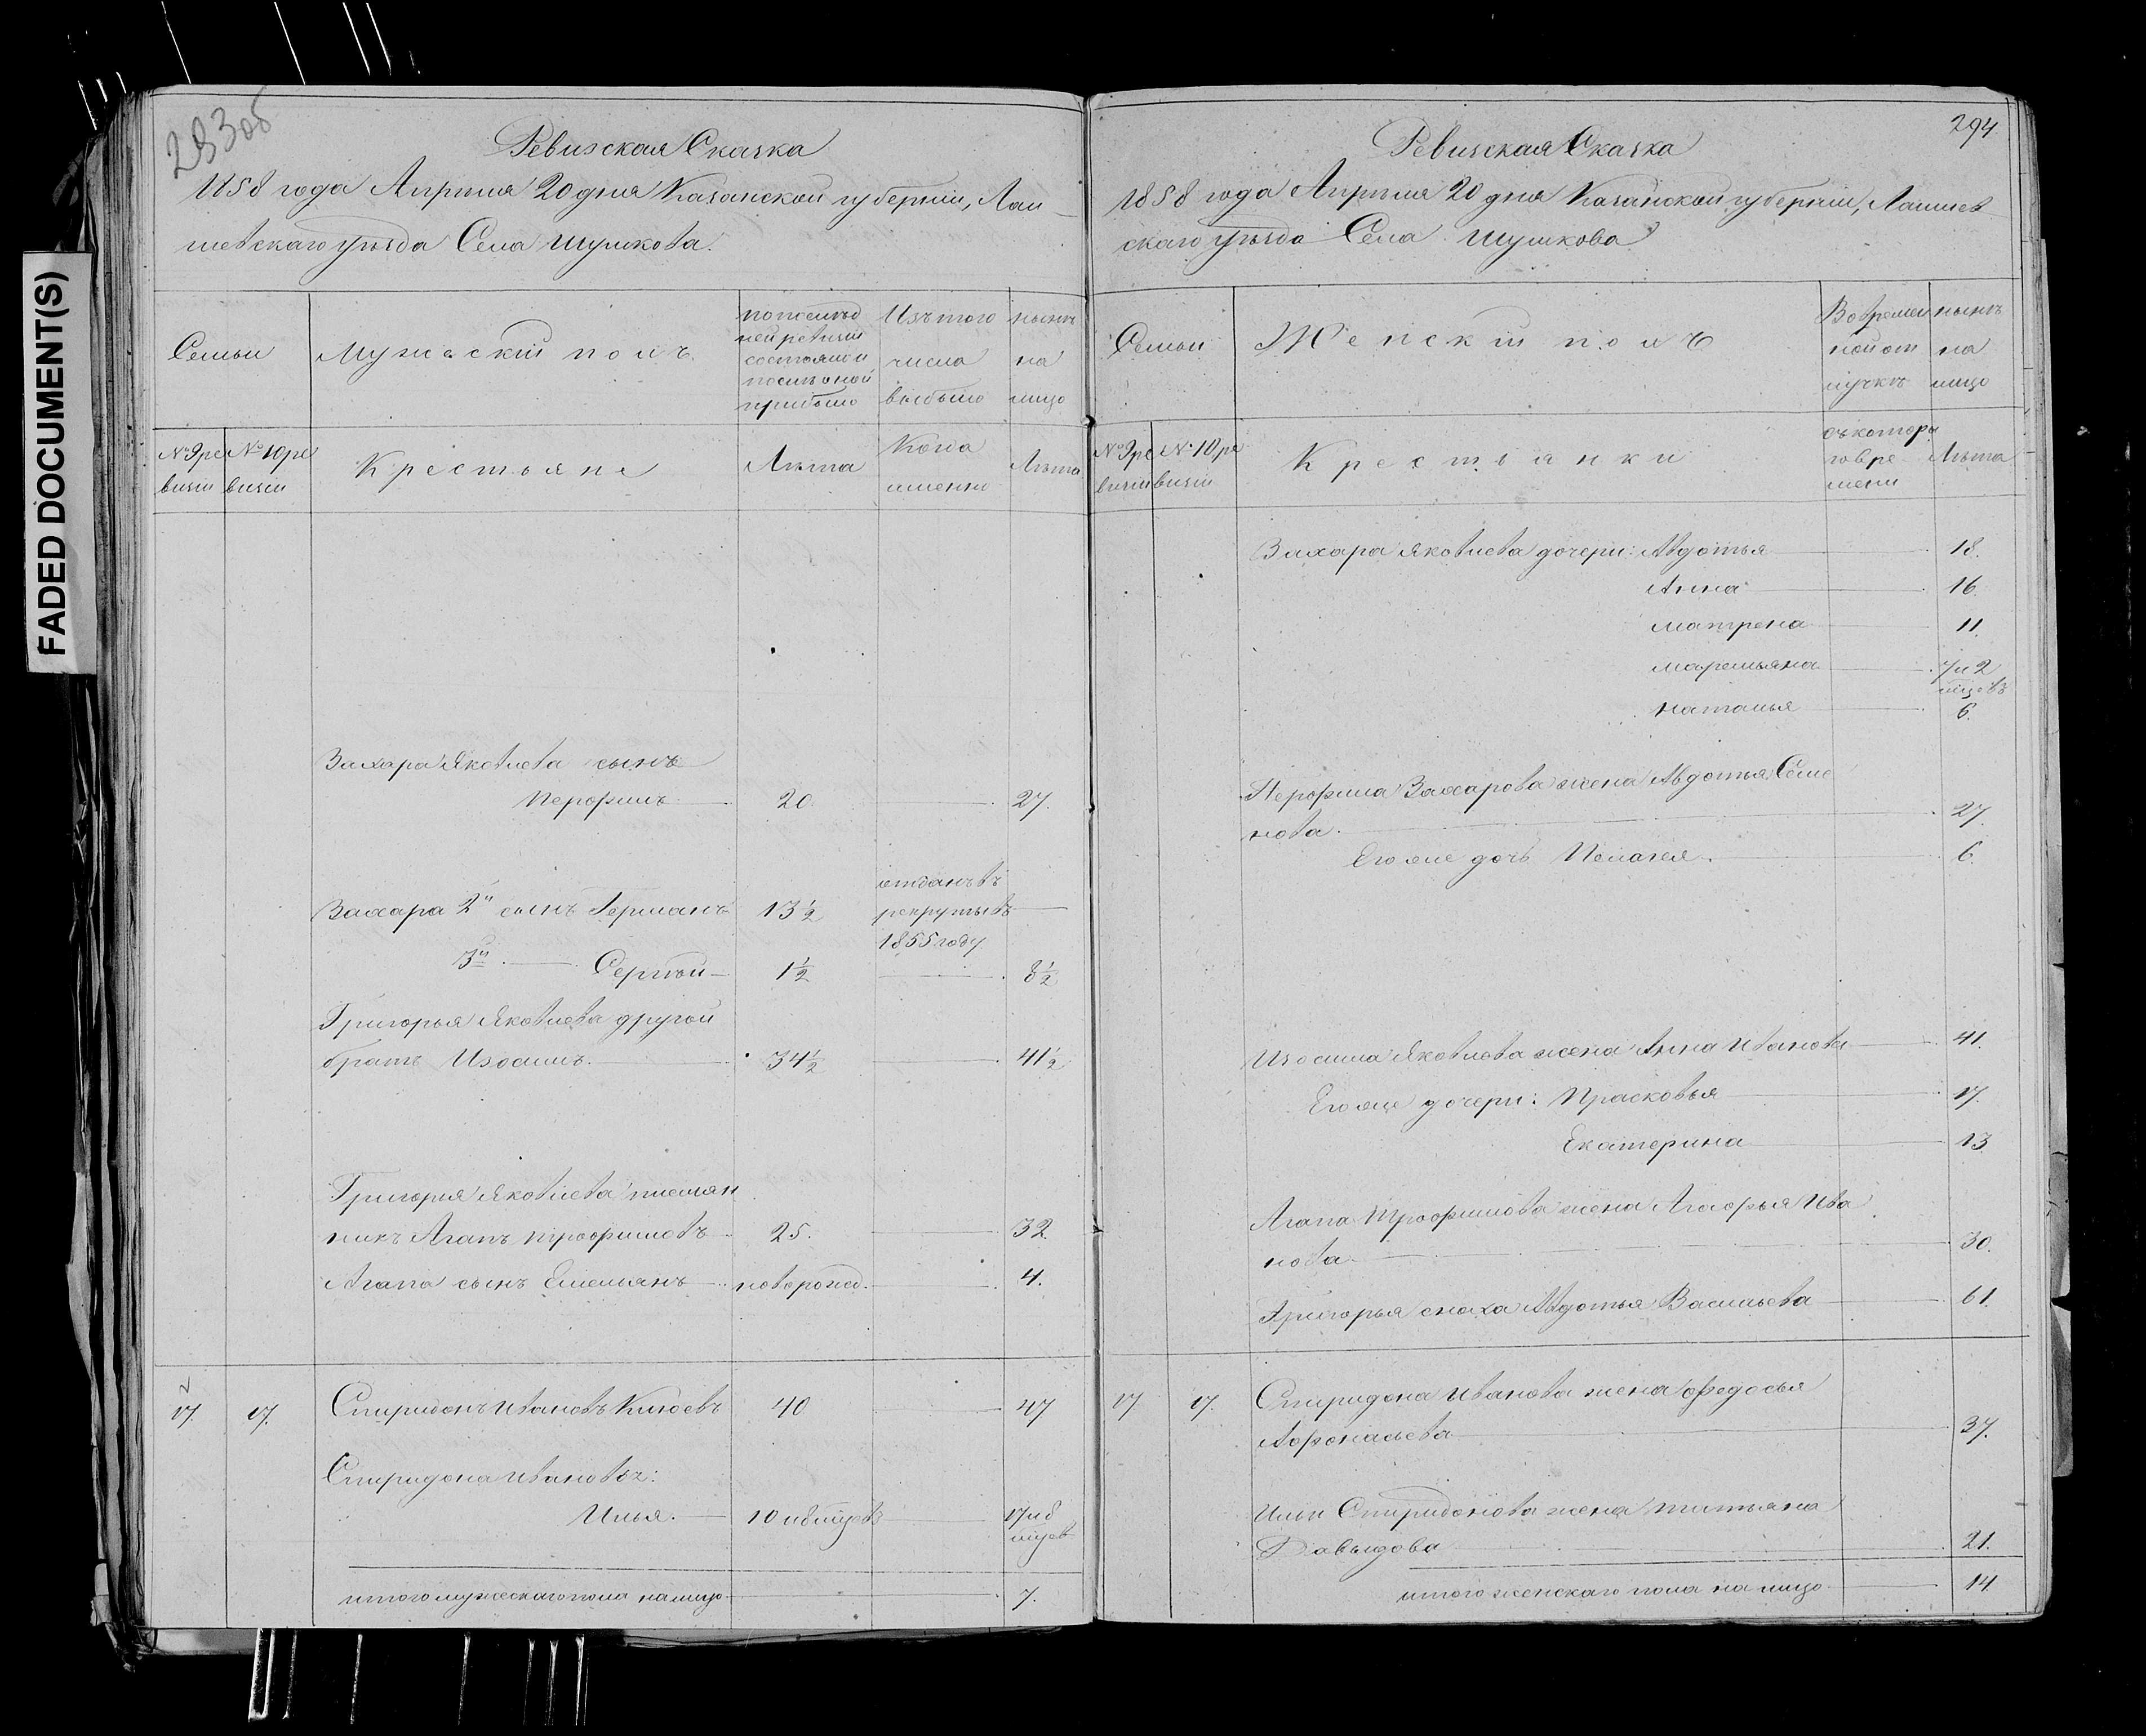 FADED DOCUMENT(S)
293 об
Ревизская Сказка
1858 года Апрѣля 20 дня Казанской губерніи, Лаи
шевскаго уѣзда Села Шумкова.
Семьи
Мужескій полъ
по послѣд
ней ревизіи
состояло и
послѣ оной
прибыло
Изъ того
числа
выбыло
нынѣ
на
лицо
№ 9 ре
визіи
№ 10 ре
визіи
Крестьяне
Лѣта
Когда
именно
Лѣта
Захара Яковлева сынъ
Перфилъ 20. 27.
Захара 2й сынъ Германъ 13½ отданъ въ
рекруты въ
1855 году
3й Сергѣй 1½ 8½
Григорья Яковлева другой
братъ Изосимъ. 34½ 41½
Григорья Яковлева племян
никъ Агапъ Трофимовъ 25. 32.
Агапа сынъ Емельянъ новорожд. 4.
17. 17. Спиридонъ Ивановъ 40 47
Спиридона Иванова:
Илья. 10 и 8 мцевъ 17 и 8
мцев
итого мужескаго пола на лицо 7.
294
Ревизская Сказка
1858 года Апрѣля 20 дня Казанской губерніи, Лаишев
скаго уѣзда Села Шумкова
Семьи
Женскій полъ
Во времен
ной от
лучкѣ
нынѣ
на
лицо
№ 9 ре
визіи
№ 10 ре
визіи
Крестьянки
съ котора
го вре
мени
Лѣта
Захара Яковлева дочери: Авдотья 18.
Анна 16.
Матрена 11.
Маремьяна 7 и 2
мцевъ
Наталья 6.
Перфила Захарова жена Авдотья Семе
нова. 27.
Его же дочь Пелагея. 6.
Изосима Яковлева жена Анна Иванова 41.
Его же дочери: Прасковья 17.
Екатерина 13
Агапа Трофимова жена Агафья Ива
нова. 30.
Григорья сноха Авдотья Васильева 61.
17 17. Спиридона Иванова жена Федосья
Афонасьева 37.
Ильи Спиридонова жена Татьяна
Давыдова 21.
итого женскаго пола на лицо 14